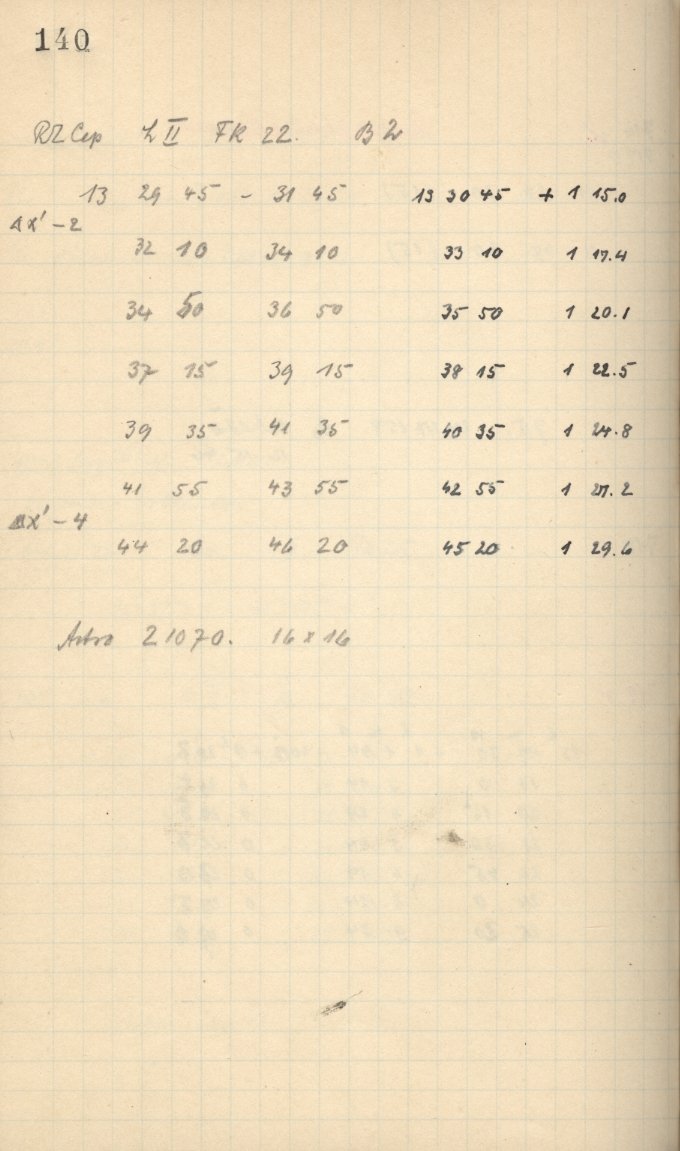 140
RZ Cep L II FK 22. B 2
13 29 45 - 31 45 13 30 45 + 1 15.0
Δx' - 2
32 10 34 10 33 10 1 17.4
34 50 36 50 35 50 1 20.1
37 15 39 15 38 15 1 22.5
39 35 41 35 40 35 1 24.8
41 55 43 55 42 55 1 27.2
Δx' - 4
44 20 46 20 45 20 1 29.6
Astro 21070. 16 x 16